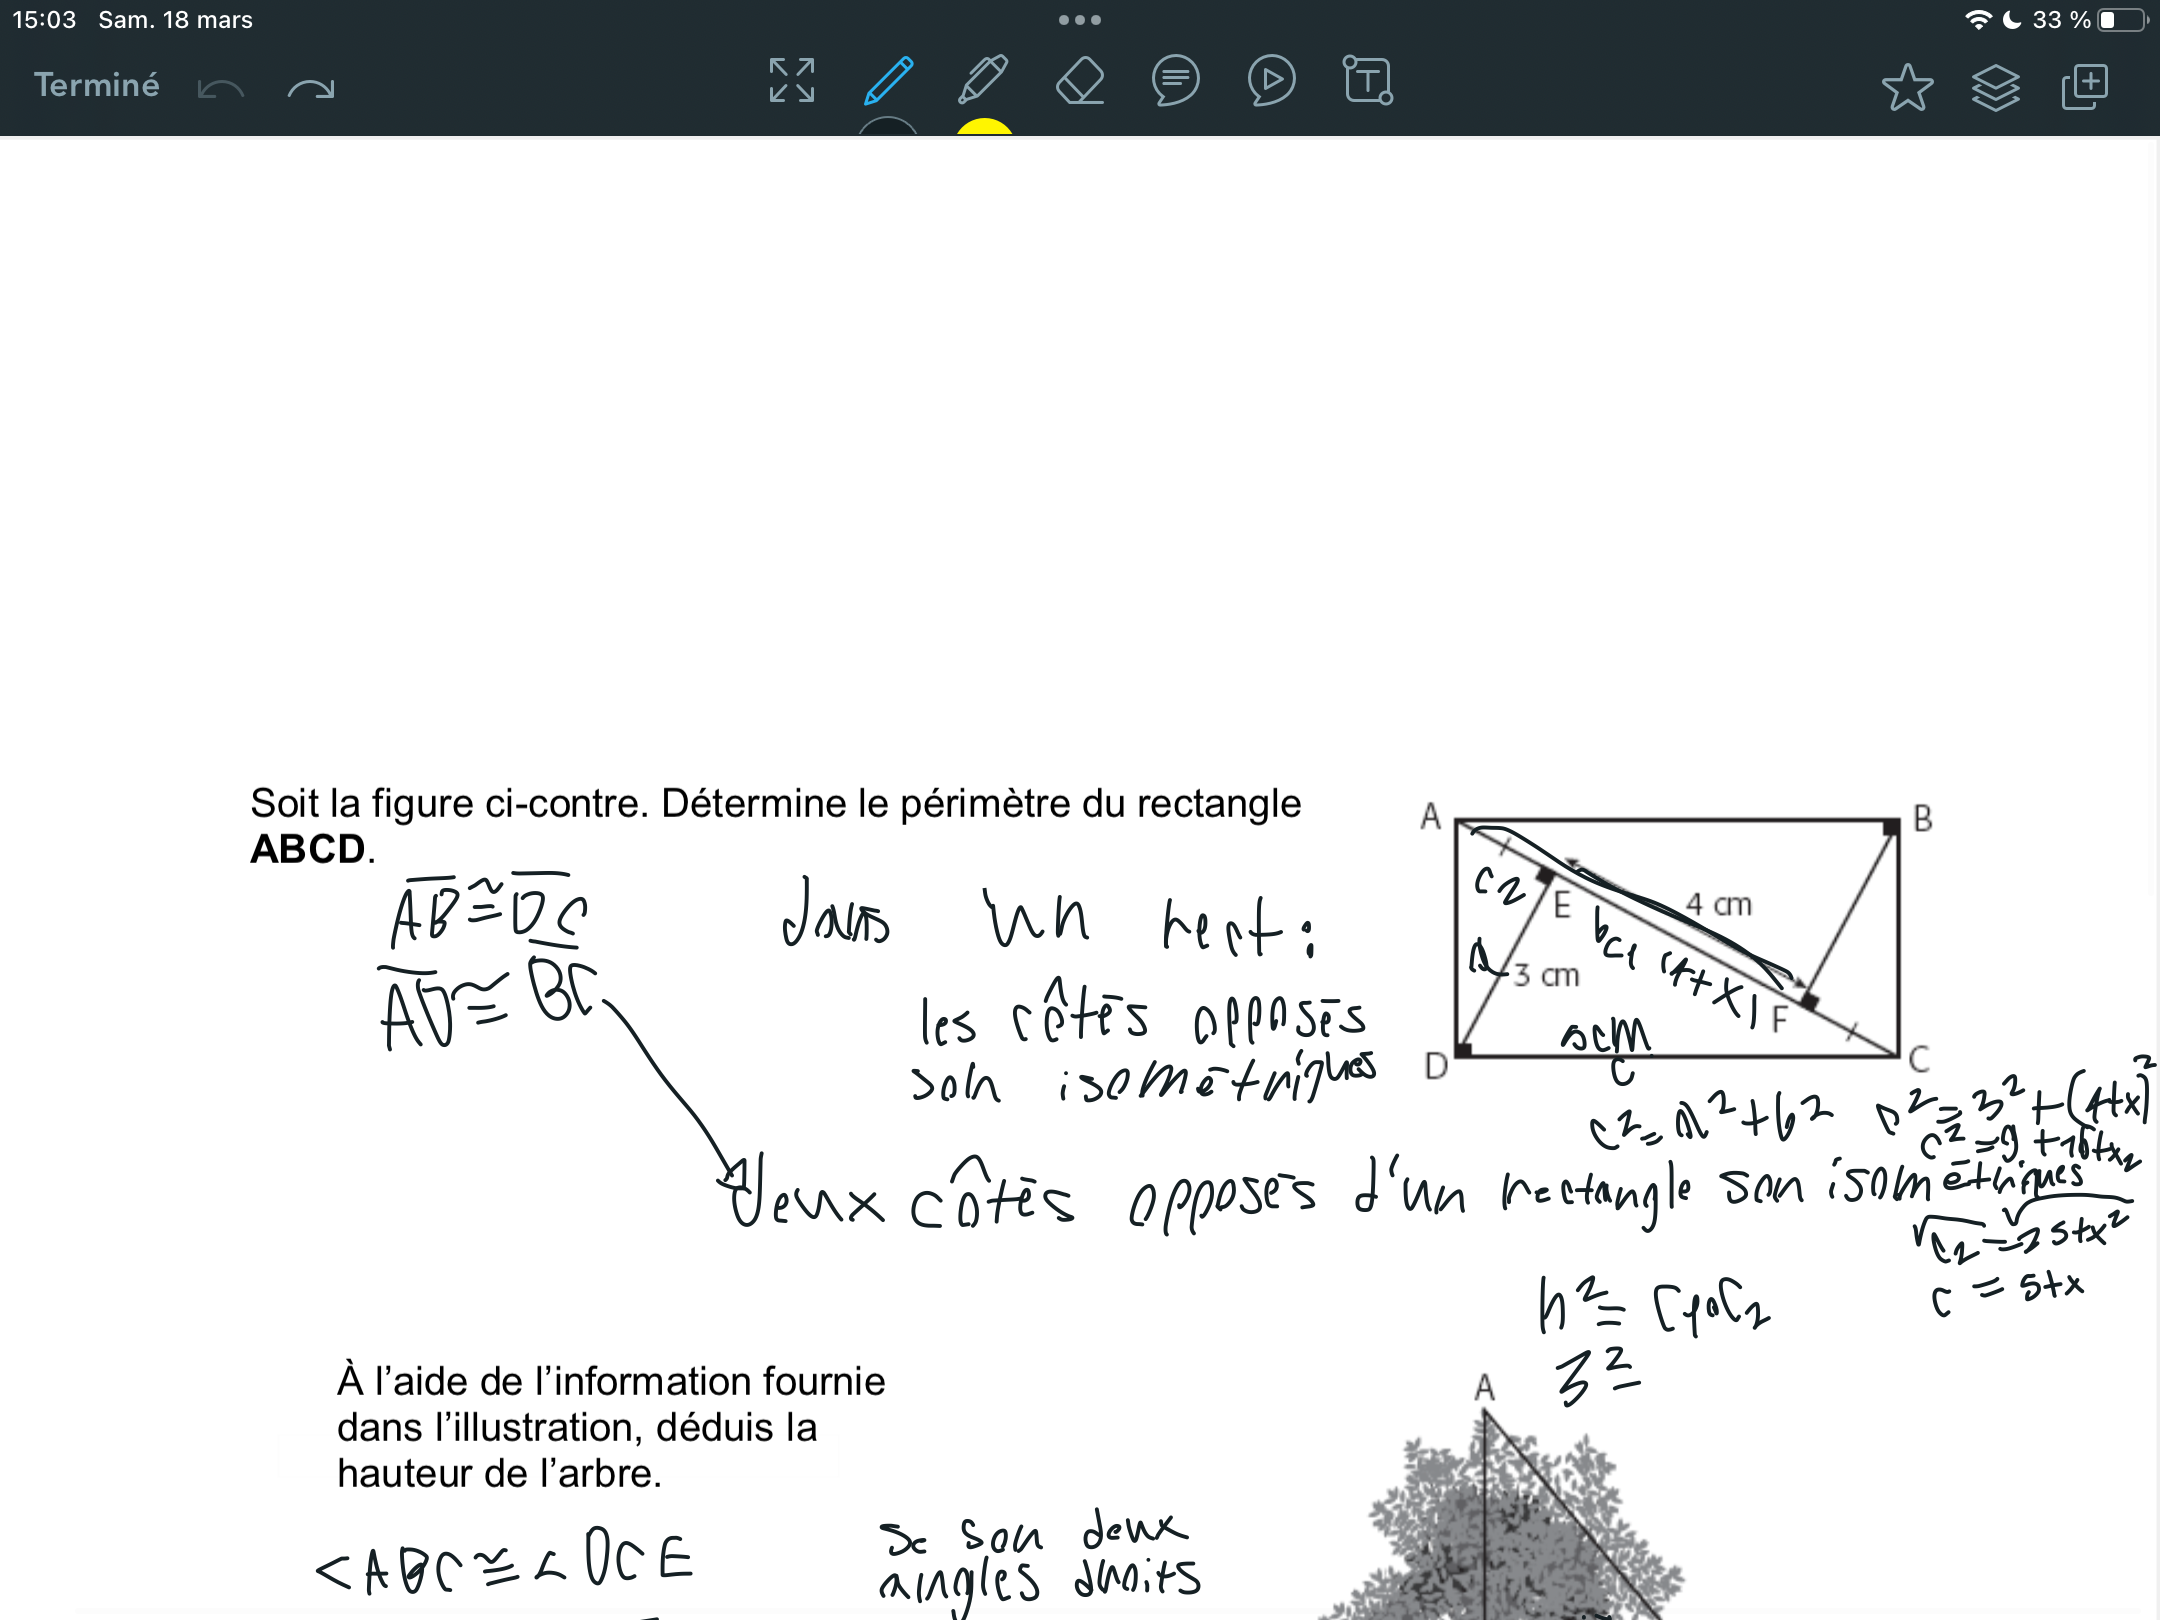 15:03 Sam. 18 mars
33 %
Terminé
T
Soit la figure ci-contre. Détermine le périmètre du rectangle
ABCD.
AB ≅ DC
AD ≅ BC
dans un rect :
les côtés opposés
son isométriques
deux côtés opposés d'un rectangle son isométriques
A
B
C2
E
4 cm
b
C1
(4+x)
a
3 cm
F
5cm
D
c
C
c²=a²+b²
c²=3²+(4+x)²
c²=9+16+x2
√c2=√25+x²
c = 5+x
h²= C1•C2
3²=
À l'aide de l'information fournie
dans l'illustration, déduis la
hauteur de l'arbre.
A
<ABC≅<DCE
se son deux
angles droits